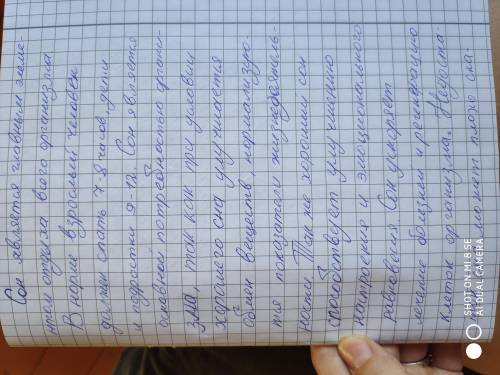 Сон является главным элеме-
нтом отдыха всего организма
В норме взрослый человек
должен спать 7-8 часов, дети
и подростки 9-12. Сон является
основной потребностью органи-
зма, так как при условии
хорошего сна улучшается
обмен веществ, нормализую-
тся показатели жизнедеятель-
ности. Так же хороший сон
способствует улучшению
настроения и эмоционального
равновесия. Сон ускоряет
лечение болезни и регенерацию
клеток организма. Недоста-
может плохо ска-
SHOT ON MI 8 SE
AI DUAL CAMERA